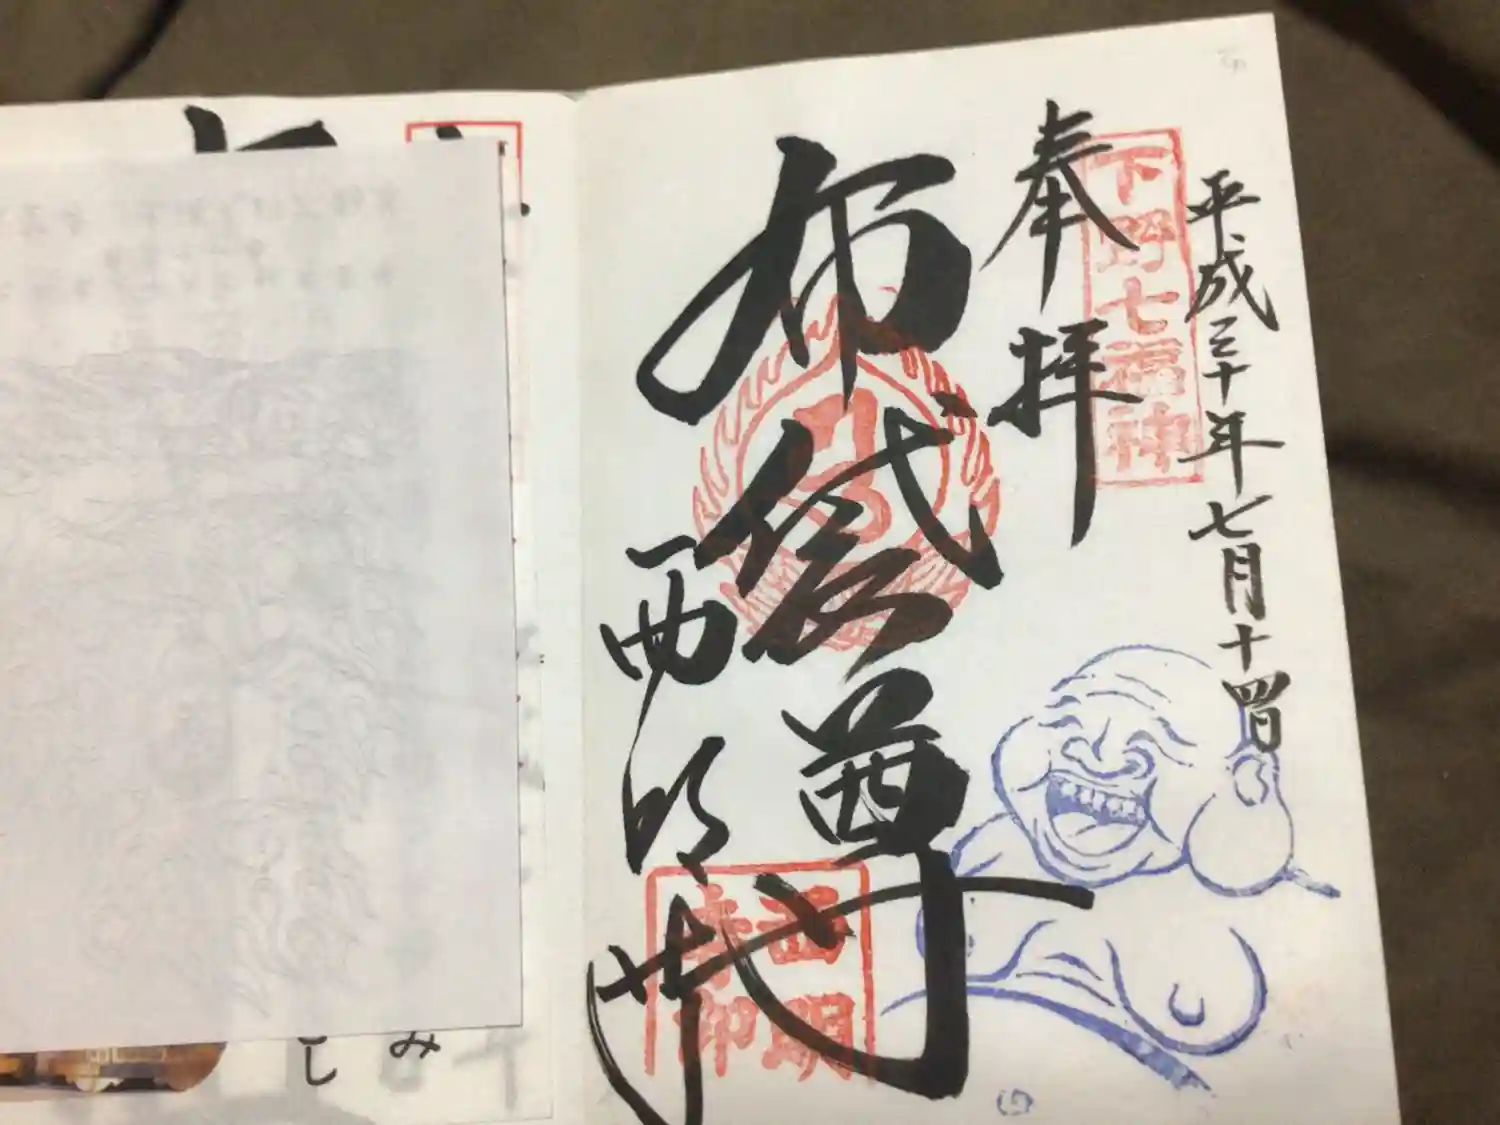 平成三十年七月十四日
下野七福神
奉拝
布袋尊
西明寺
西明
寺印
み
し